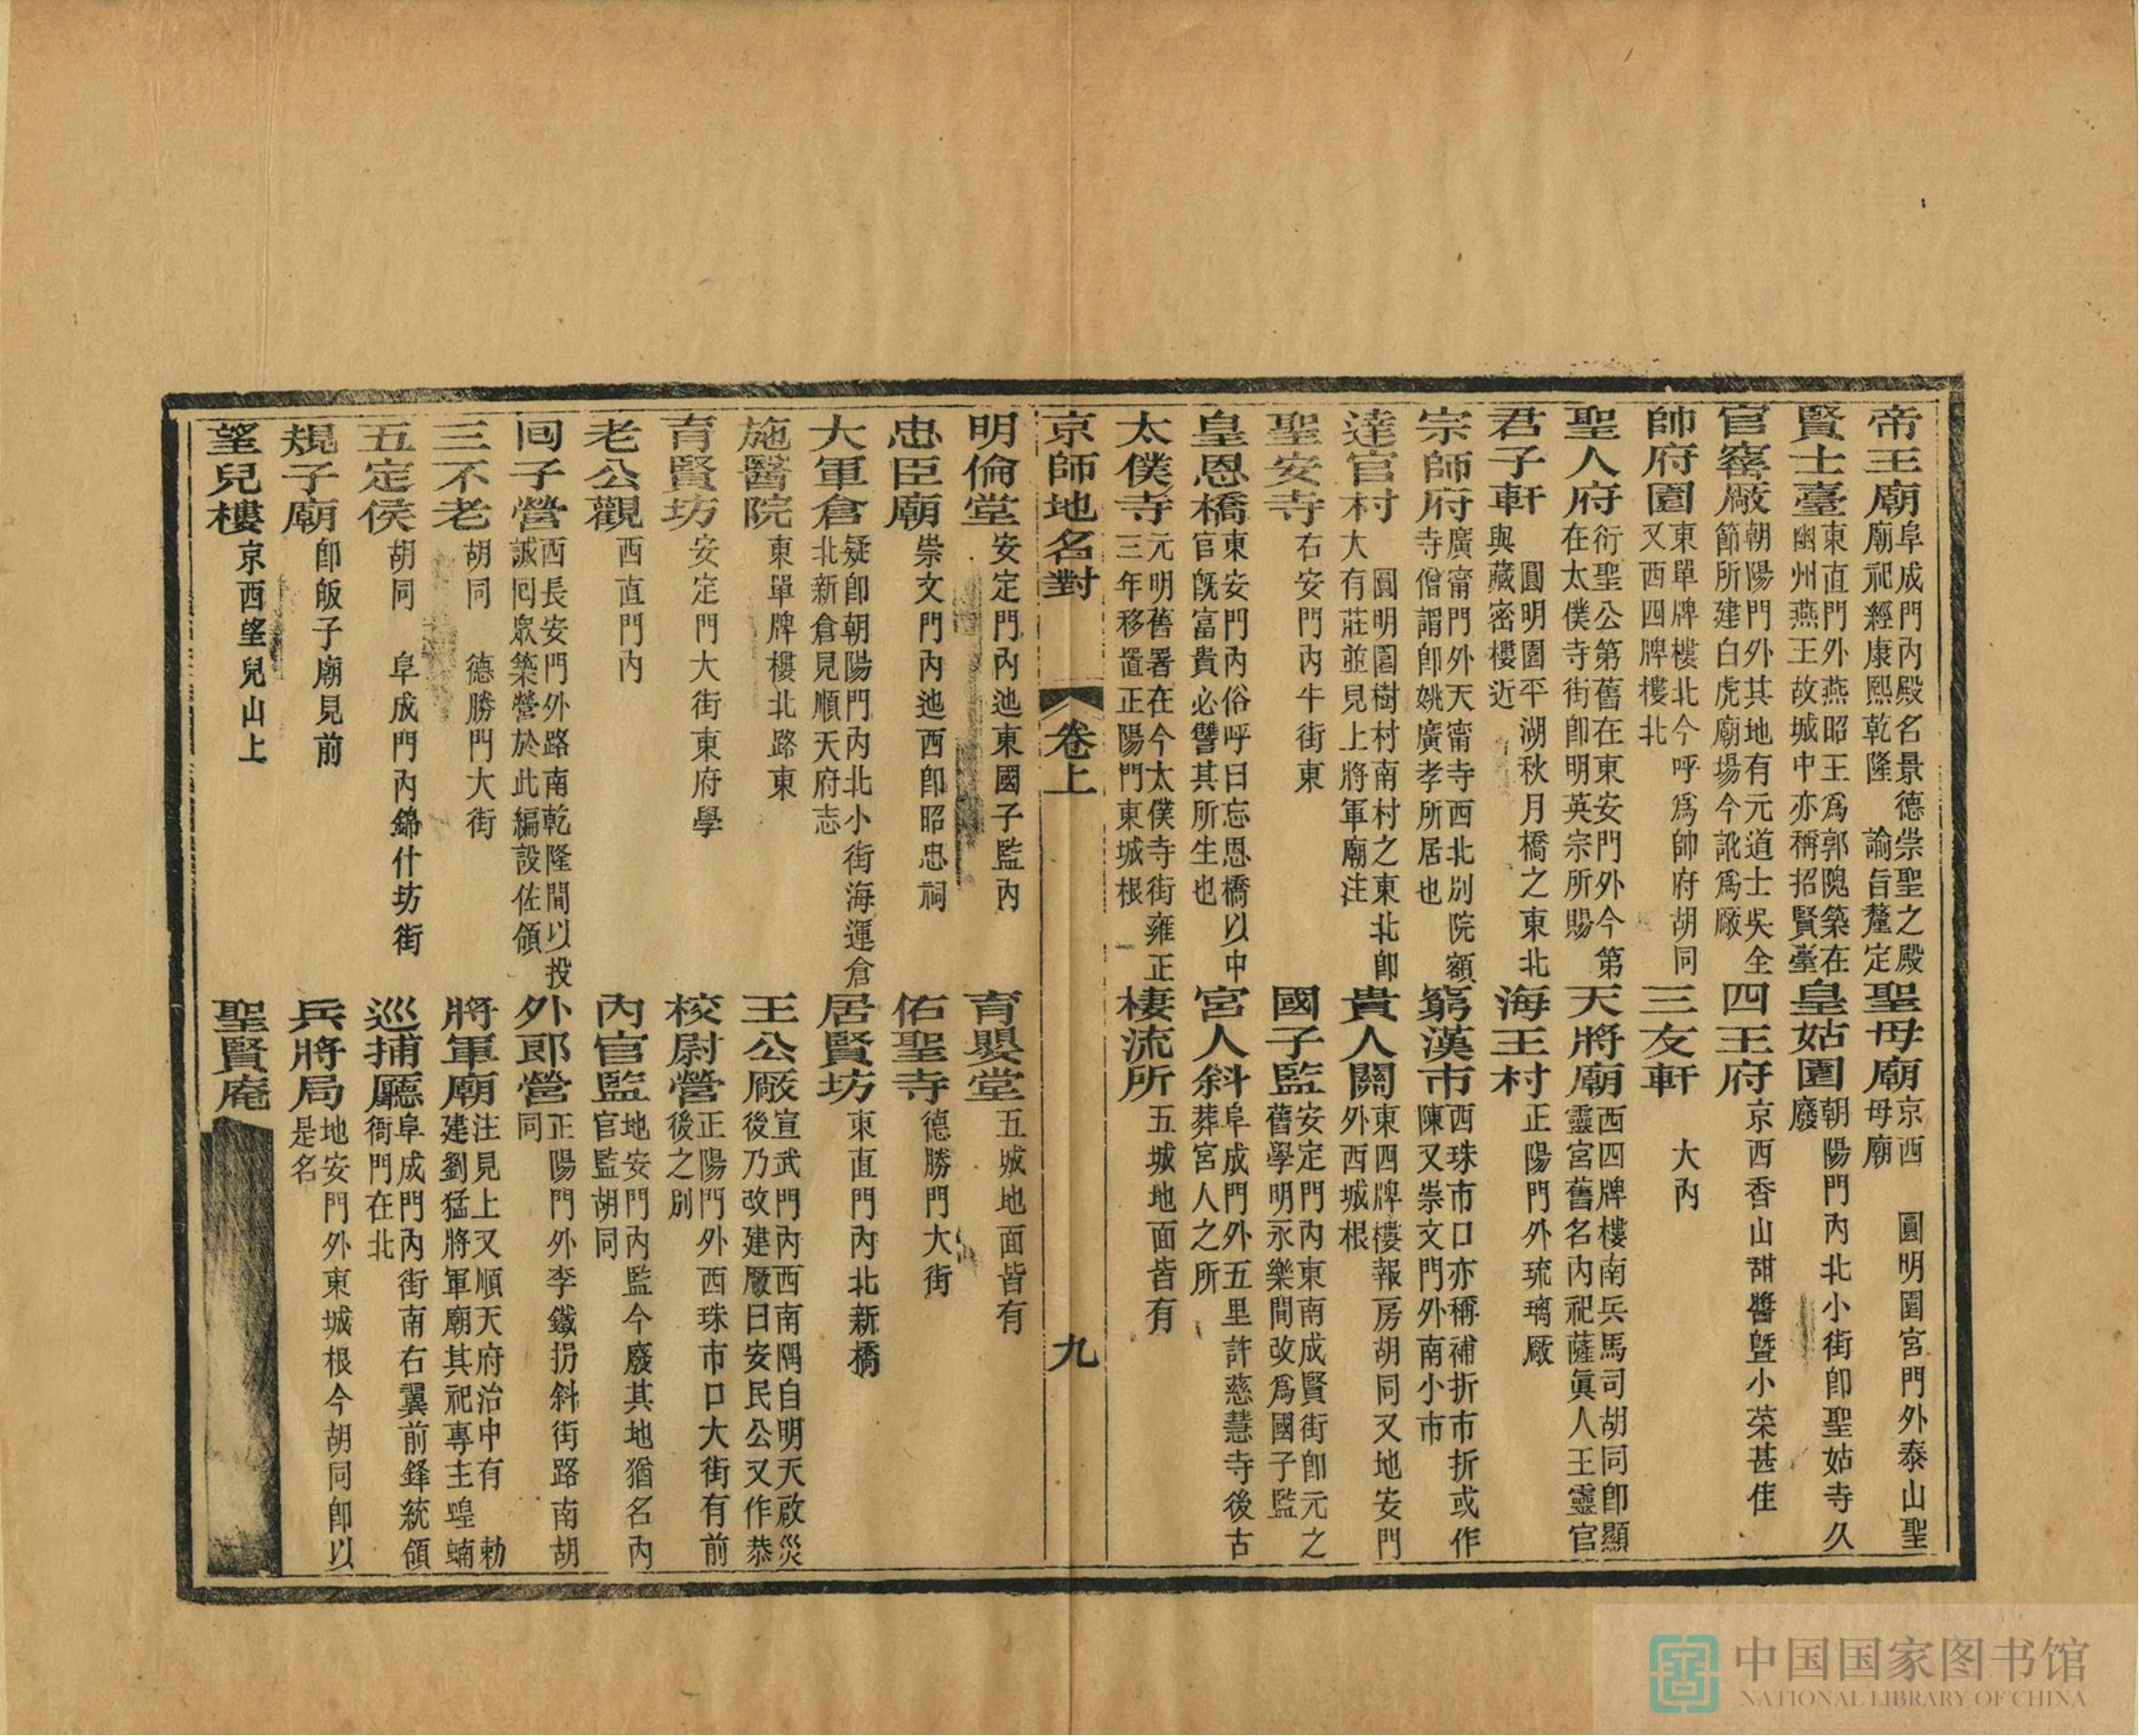 帝王廟阜成門內殿名景德崇聖之殿廟祀經康熙乾隆 諭旨釐定 聖母廟京西 圓明園宮門外泰山聖母廟
賢士臺東直門外燕昭王爲郭隗築在幽州燕王故城中亦稱招賢臺 皇姑園朝陽門內北小街卽聖姑寺久廢
官窰廠朝陽門外其地有元道士吳全節所建白虎廟場今訛爲廠 四王府京西香山甜醬曁小菜甚佳
帥府園東單牌樓北今呼爲帥府胡同又西四牌樓北 三友軒 大內
聖人府衍聖公第舊在東安門外今第在太僕寺街卽明英宗所賜 天將廟西四牌樓南兵馬司胡同卽顯靈宮舊名內祀薩眞人王靈官
君子軒 圓明園平湖秋月橋之東北與藏密樓近 海王村正陽門外琉璃廠
宗師府廣甯門外天甯寺西北別院額寺僧謂卽姚廣孝所居也 窮漢市西珠市口亦稱補折市折或作陳又崇文門外南小市
達官村 圓明園樹村南村之東北卽大有莊並見上將軍廟注 貴人關東四牌樓報房胡同又地安門外西城根
聖安寺右安門內牛街東 國子監安定門內東南成賢街卽元之舊學明永樂間改爲國子監
皇恩橋東安門內俗呼曰忘恩橋以中官旣富貴必讐其所生也 宮人斜阜成門外五里許慈慧寺後古葬宮人之所
太僕寺元明舊署在今太僕寺街雍正三年移置正陽門東城根 棲流所五城地面皆有
京師地名對 卷上 九
明倫堂安定門內迤東國子監內 育嬰堂五城地面皆有
忠臣廟崇文門內迤西卽昭忠祠 佑聖寺德勝門大街
大軍倉疑卽朝陽門內北小街海運倉北新倉見順天府志 居賢坊東直門內北新橋
施醫院東單牌樓北路東 王公廠宣武門內西南隅自明天啟災後乃改建廠曰安民公又作恭
育賢坊安定門大街東府學 校尉營正陽門外西珠市口大街有前後之別
老公觀西直門內 內官監地安門內監今廢其地猶名內官監胡同
回子營西長安門外路南乾隆間以投誠回眾築營於此編設佐領 外郎營正陽門外李鐵拐斜街路南胡同
三不老胡同 德勝門大街 將軍廟注見上又順天府治中有 勅建劉猛將軍廟其祀專主蝗蝻
五定侯胡同 阜成門內錦什坊街 巡捕廳阜成門內街南右翼前鋒統領衙門在北
規子廟卽皈子廟見前 兵將局地安門外東城根今胡同卽以是名
望兒樓京西望兒山上 聖賢庵
中国国家图书馆
NATIONAL LIBRARY OF CHINA